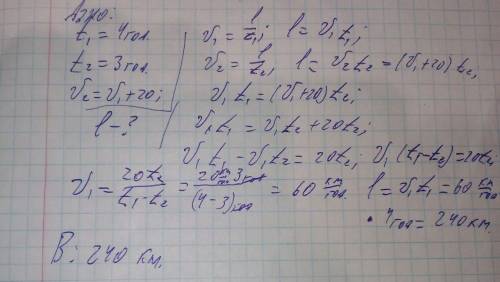 Дано:
t₁ = 4 год.
t₂ = 3 год.
V₂ = V₁ + 20;
l - ?
V₁ = l/t₁; l = V₁t₁;
V₂ = l/t₂; l = V₂t₂ = (V₁+20)t₂;
V₁t₁ = (V₁+20)t₂;
V₁t₁ = V₁t₂ + 20t₂;
V₁t₁ - V₁t₂ = 20t₂; V₁(t₁-t₂) = 20t₂
V₁ = 20t₂/(t₁-t₂) = 20 км/год · 3 год/(4-3) год = 60 км/год. l = V₁t₁ = 60 км/год
· 4 год = 240 км.
В: 240 км.